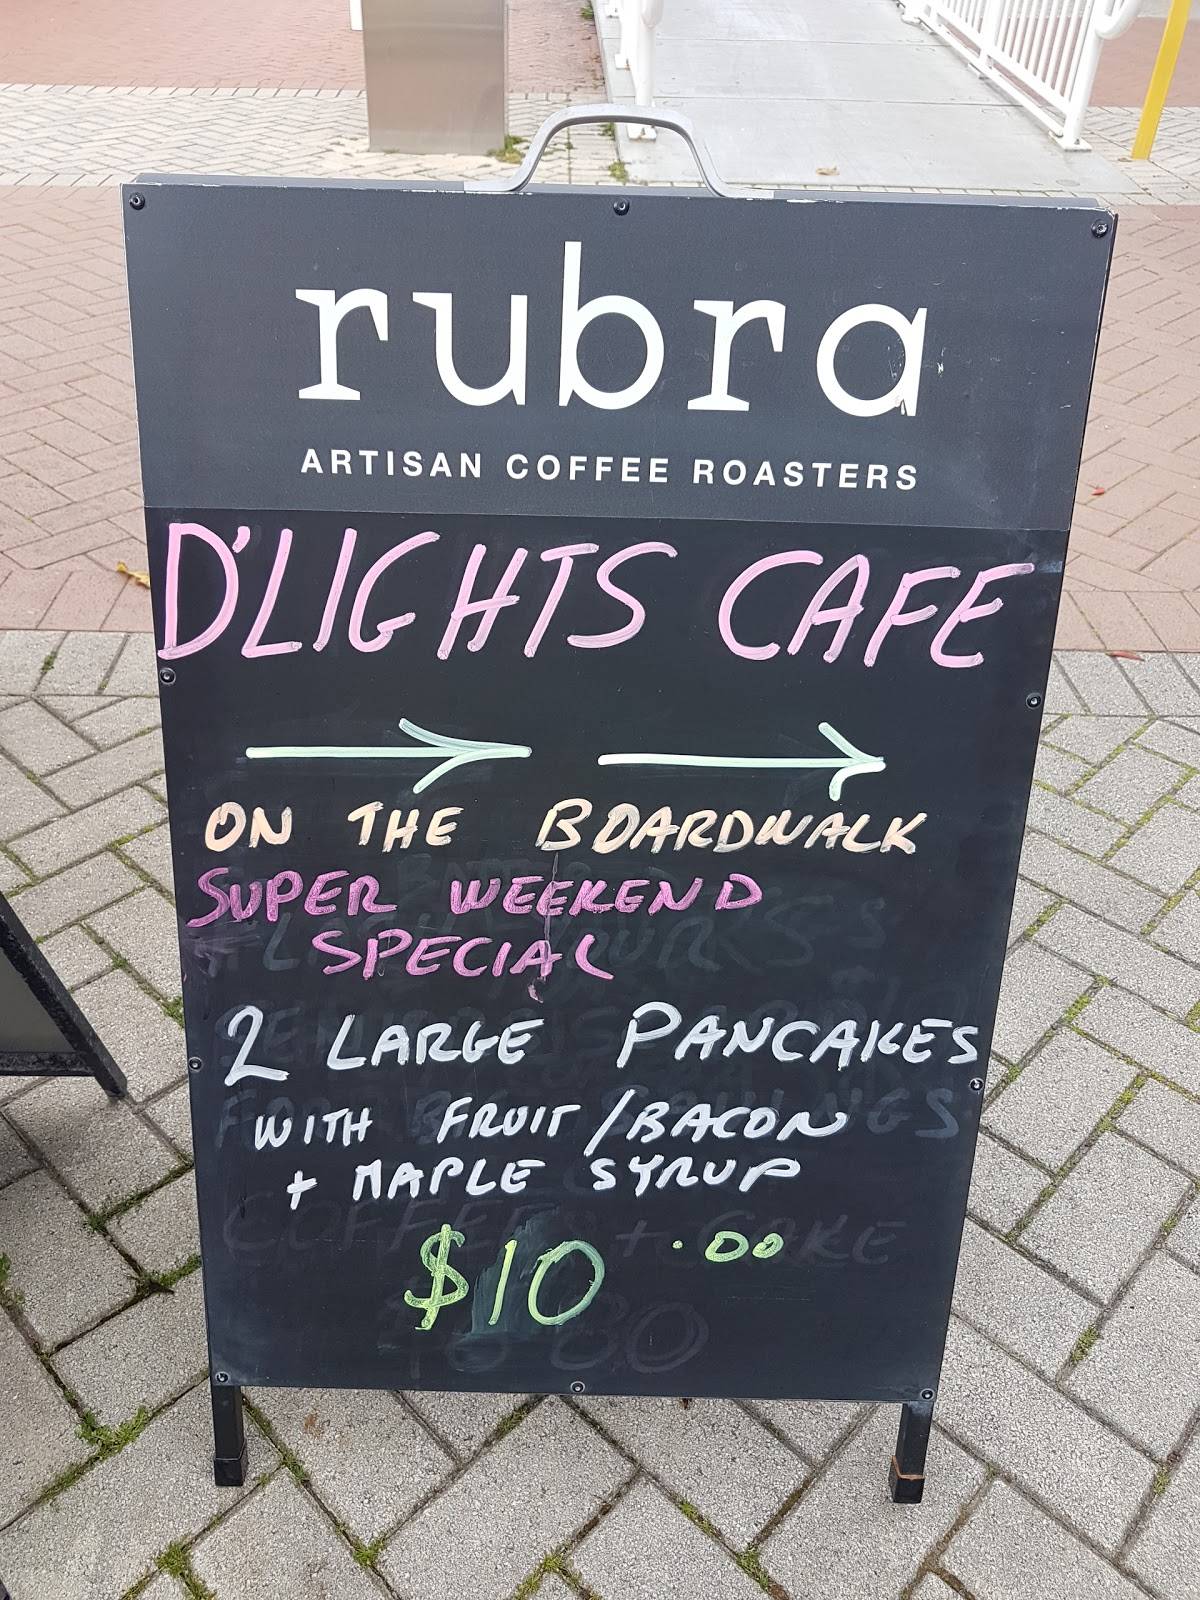 rubra
ARTISAN COFFEE ROASTERS
D'LIGHTS CAFE
ON THE BOARDWALK
SUPER WEEKEND
SPECIAL
2 LARGE PANCAKES
WITH FRUIT/BACON
+ MAPLE SYRUP
$10.00